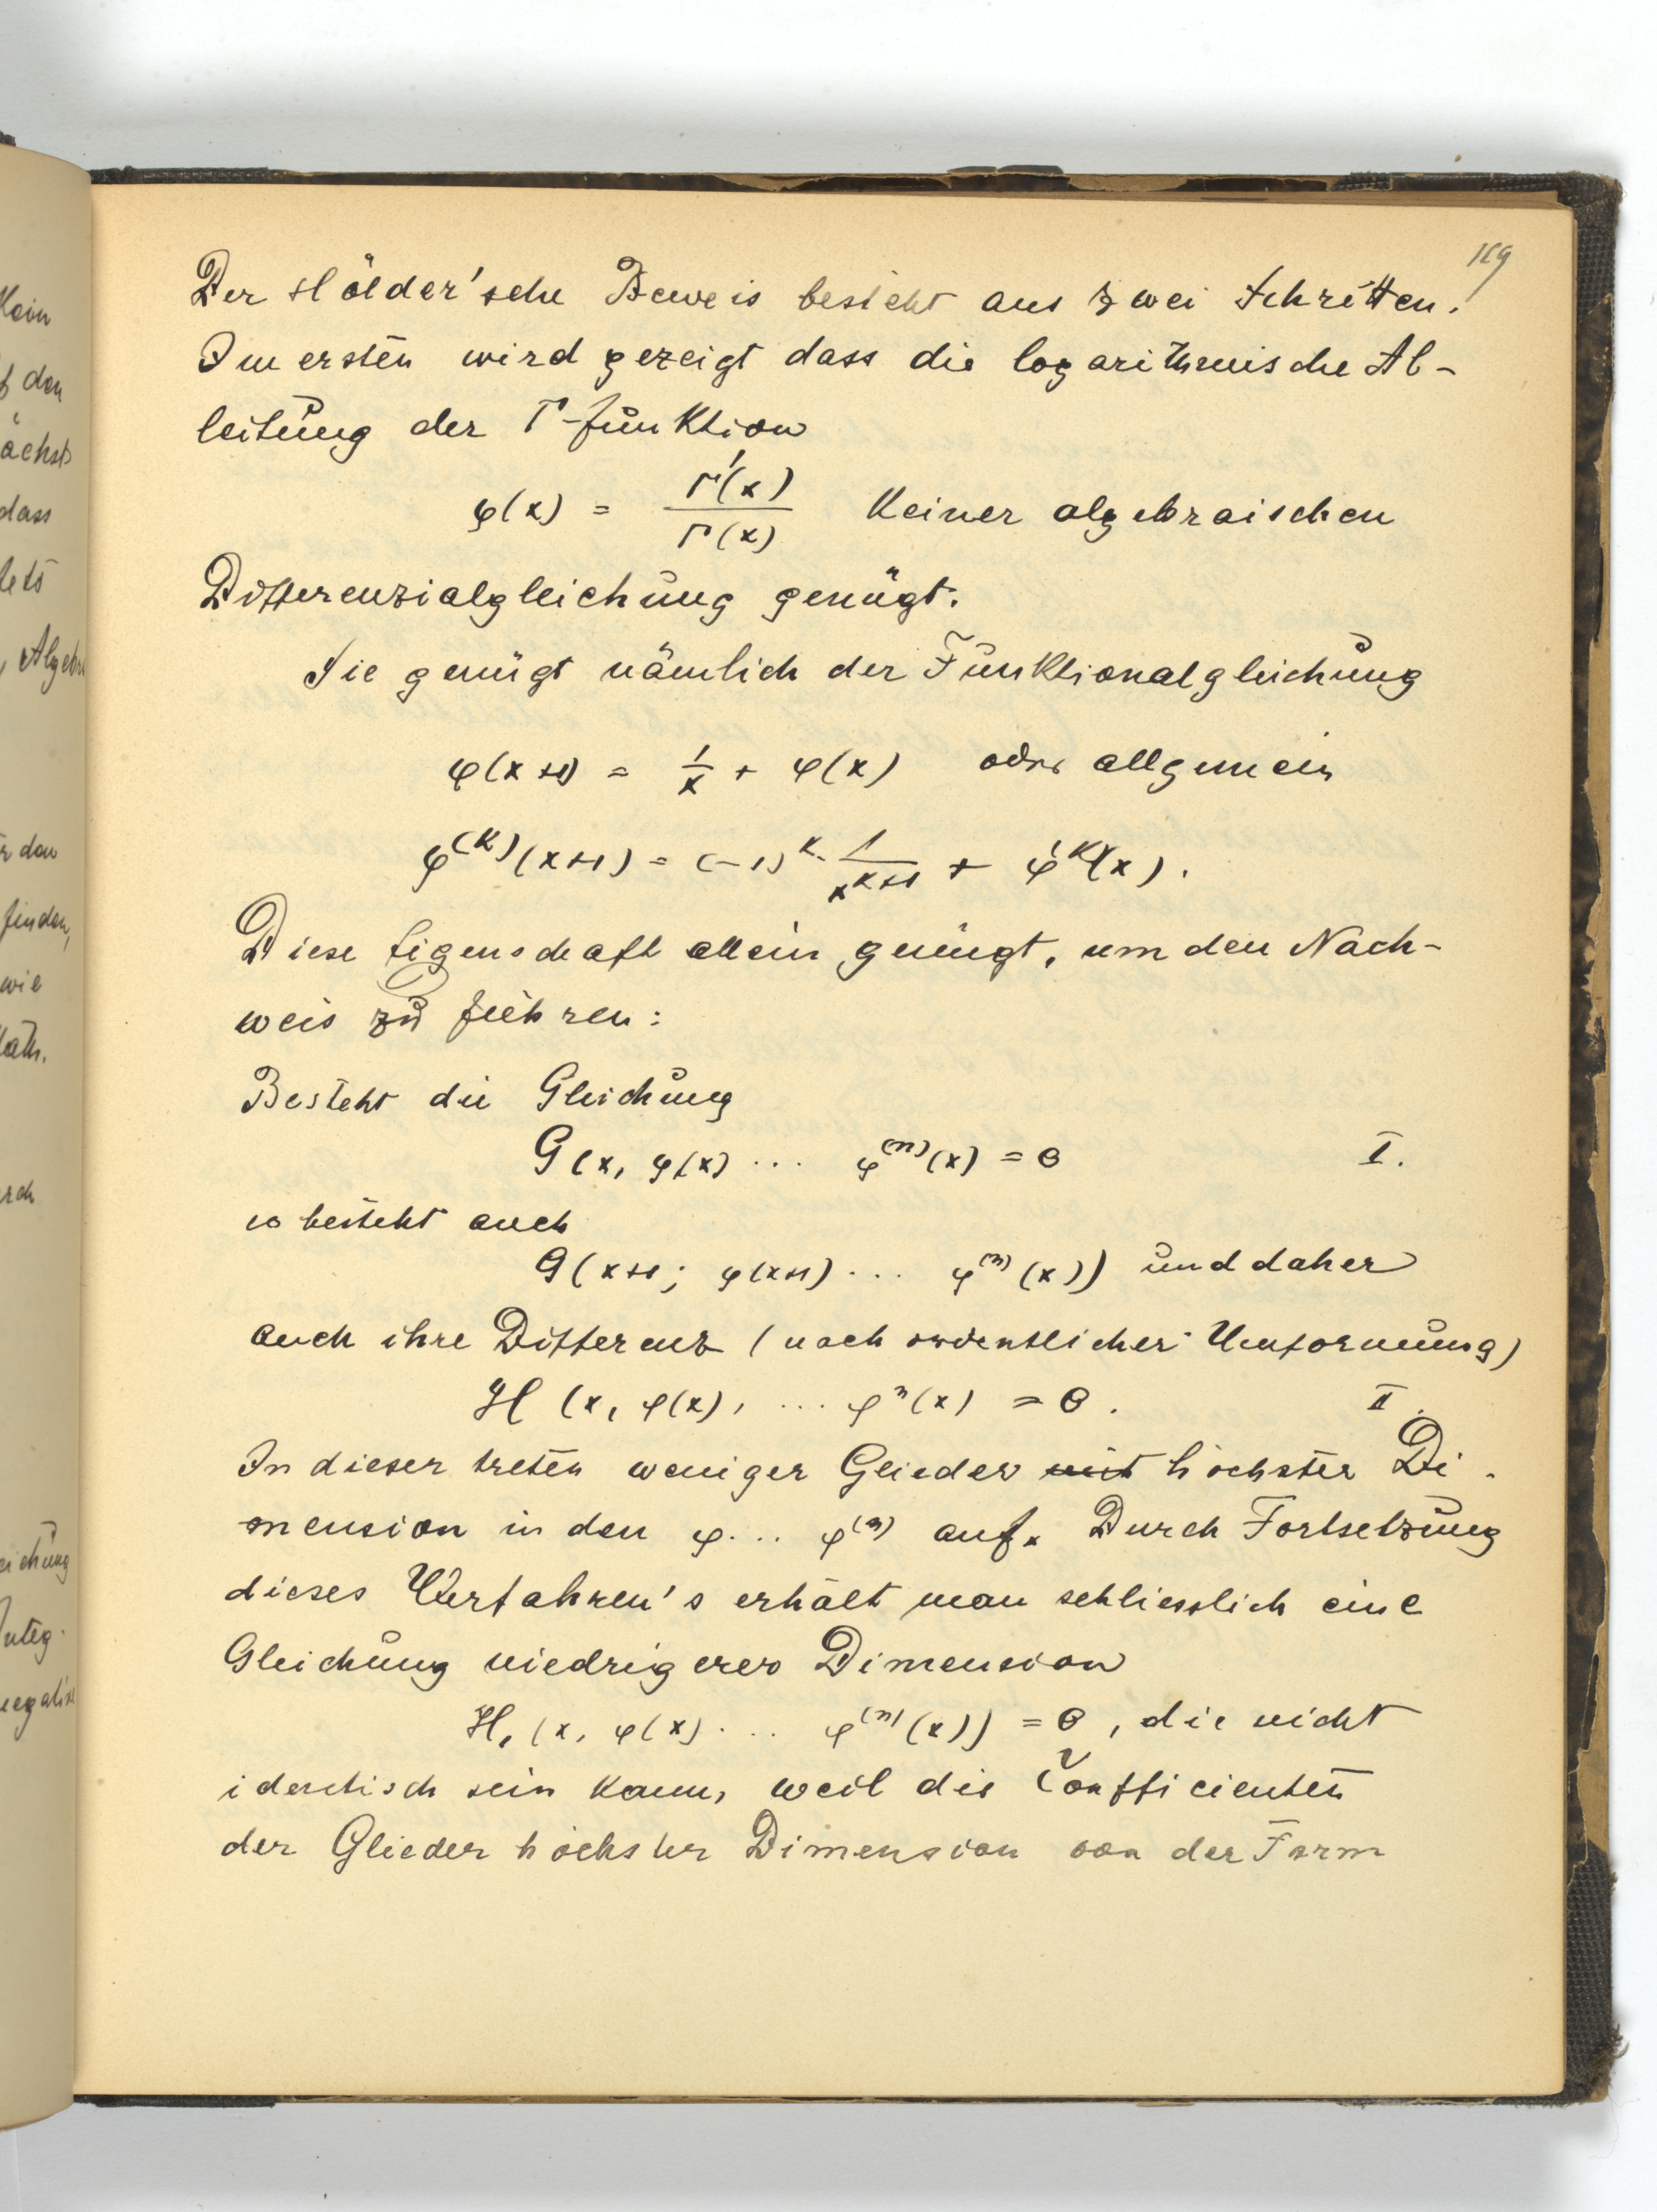 119
Der Hölder'sche Beweis besteht aus zwei Schritten.
Im ersten wird gezeigt dass die logarithmische Ab-
leitung der Γ-funktion
φ(x) = Γ'(x) / Γ(x) keiner algebraischen
Differenzialgleichung genügt.
Sie genügt nämlich der Funktionalgleichung
φ(x+1) = 1/x + φ(x) oder allgemein
φ^(k)(x+1) = (-1)^k · 1/x^(k+1) + φ^(k)(x).
Diese Eigenschaft allein genügt, um den Nach-
weis zu führen:
Besteht die Gleichung
G(x, φ(x) ... φ^(n)(x) = 0 I.
so besteht auch
G(x+1; φ(x+1) ... φ^(n)(x)) und daher
auch ihre Differenz (nach ordentlicher Umformung)
H (x, φ(x), ... φ^n(x) = 0. II.
In dieser treten weniger Glieder mit höchster Di-
mension in den φ... φ^(n) auf. Durch Fortsetzung
dieses Verfahren's erhält man schliesslich eine
Gleichung niedrigerer Dimension
H₁ (x, φ(x) ... φ^(n)(x)) = 0, die nicht
identisch sein kann, weil die Coefficienten
der Glieder höchster Dimension von der Form
Klein
f den
ächst
dass
tets
, Algebra
r den
finden,
wie
Math.
rch
eichung
Integ-
negativ